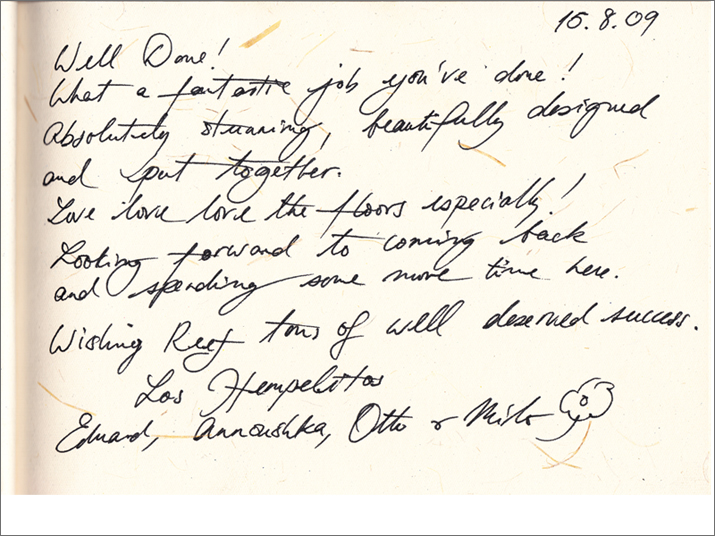 15.8.09
Well Done!
What a fantastic job you've done!
Absolutely stunning, beautifully designed
and put together.
Love love love the floors especially!
Looking forward to coming back
and spending some more time here.
Wishing Reef tons of well deserved success.
Los Hempelitos
Eduard, Annoushka, Otto & Milo